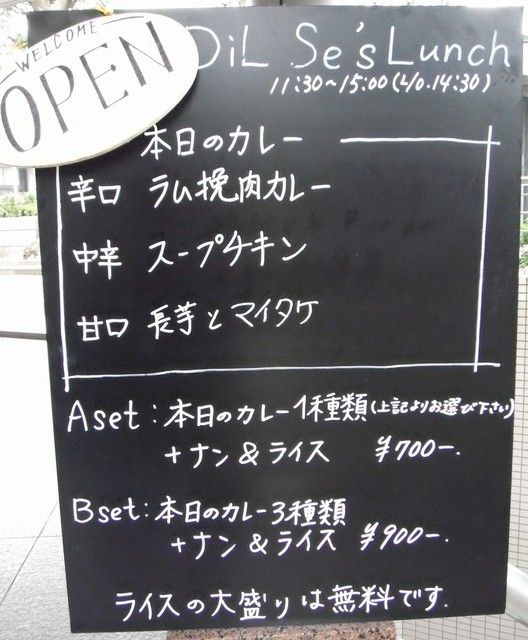 WELCOME
OPEN
DiL Se's Lunch
11:30~15:00(L/O.14:30)
本日のカレー
辛口 ラム挽肉カレー
中辛 スープチキン
甘口 長芋とマイタケ
Aset:本日のカレー1種類(上記よりお選び下さい)
+ナン&ライス ¥700-.
Bset:本日のカレー3種類
+ナン&ライス ¥900-.
ライスの大盛りは無料です.